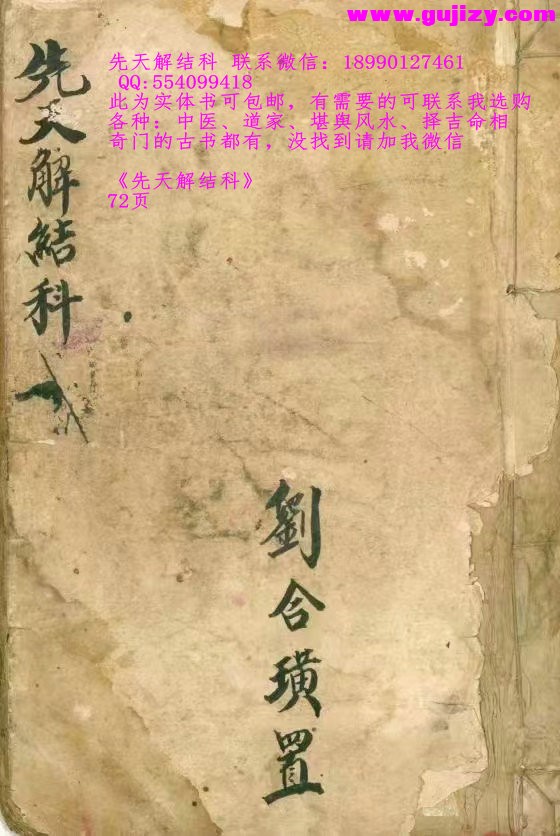 www.gujizy.com
先天解结科 联系微信：18990127461
QQ:554099418
此为实体书可包邮，有需要的可联系我选购
各种：中医、道家、堪舆风水、择吉命相
奇门的古书都有，没找到请加我微信
《先天解结科》
72页
先天解結科
劉合璜置